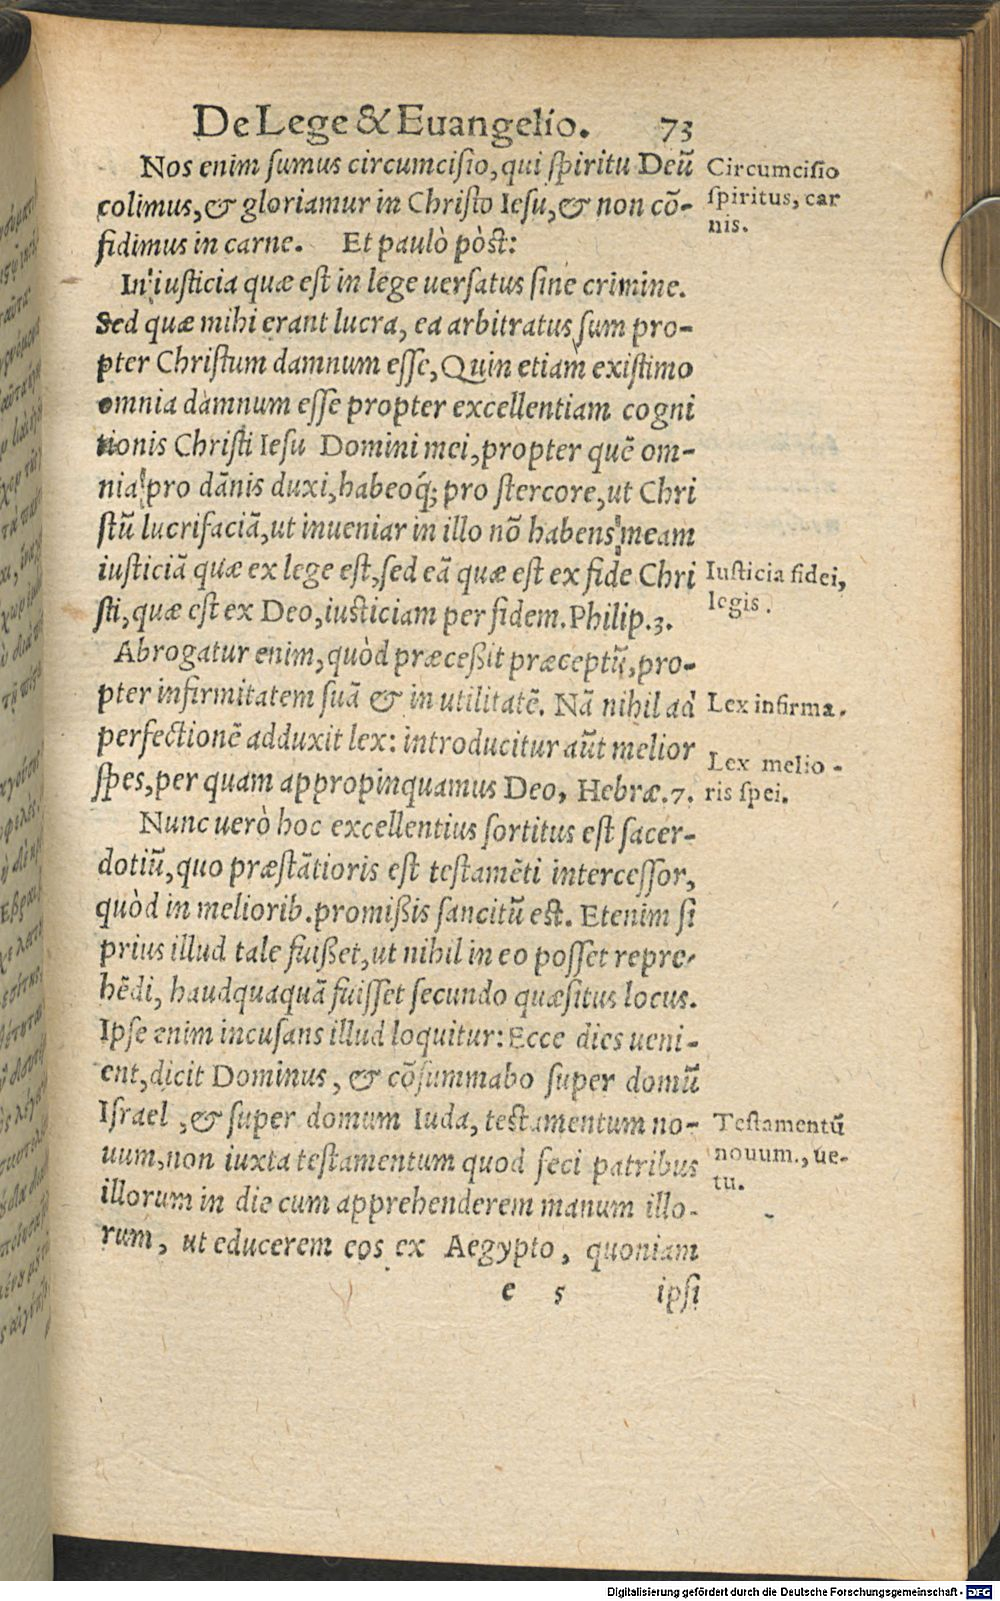 De Lege & Euangelio. 73
Nos enim sumus circumcisio, qui spiritu Deū
colimus, & gloriamur in Christo Iesu, & non cō-
fidimus in carne. Et paulò pòst:
In iusticia quæ est in lege uersatus sine crimine.
Sed quæ mihi erant lucra, ea arbitratus sum pro-
pter Christum damnum esse, Quin etiam existimo
omnia damnum esse propter excellentiam cogni
tionis Christi Iesu Domini mei, propter quē om-
nia pro dānis duxi, habeoq́; pro stercore, ut Chri
stū lucrifaciā, ut inueniar in illo nō habens meam
iusticiā quæ ex lege est, sed eā quæ est ex fide Chri
sti, quæ est ex Deo, iusticiam per fidem. Philip. 3.
Abrogatur enim, quòd præceßit præceptū, pro-
pter infirmitatem suā & inutilitatē. Nā nihil ad
perfectionē adduxit lex: introducitur aūt melior
spes, per quam appropinquamus Deo, Hebræ. 7.
Nunc uerò hoc excellentius sortitus est sacer-
dotiū, quo præstātioris est testamēti intercessor,
quòd in meliorib. promißis sancitū est. Etenim si
prius illud tale fuißet, ut nihil in eo posset repre-
hēdi, haudquaquā fuisset secundo quæsitus locus.
Ipse enim incusans illud loquitur: Ecce dies ueni-
ent, dicit Dominus, & cōsummabo super domū
Israel, & super domum Iuda, testamentum no-
uum, non iuxta testamentum quod feci patribus
illorum in die cum apprehenderem manum illo-
rum, ut educerem eos ex Aegypto, quoniam
e 5 ipsi
Circumcisio
spiritus, car
nis.
Iusticia fidei,
legis.
Lex infirma.
Lex melio-
ris spei.
Testamentū
nouum., ue-
tu.
Digitalisierung gefördert durch die Deutsche Forschungsgemeinschaft - DFG